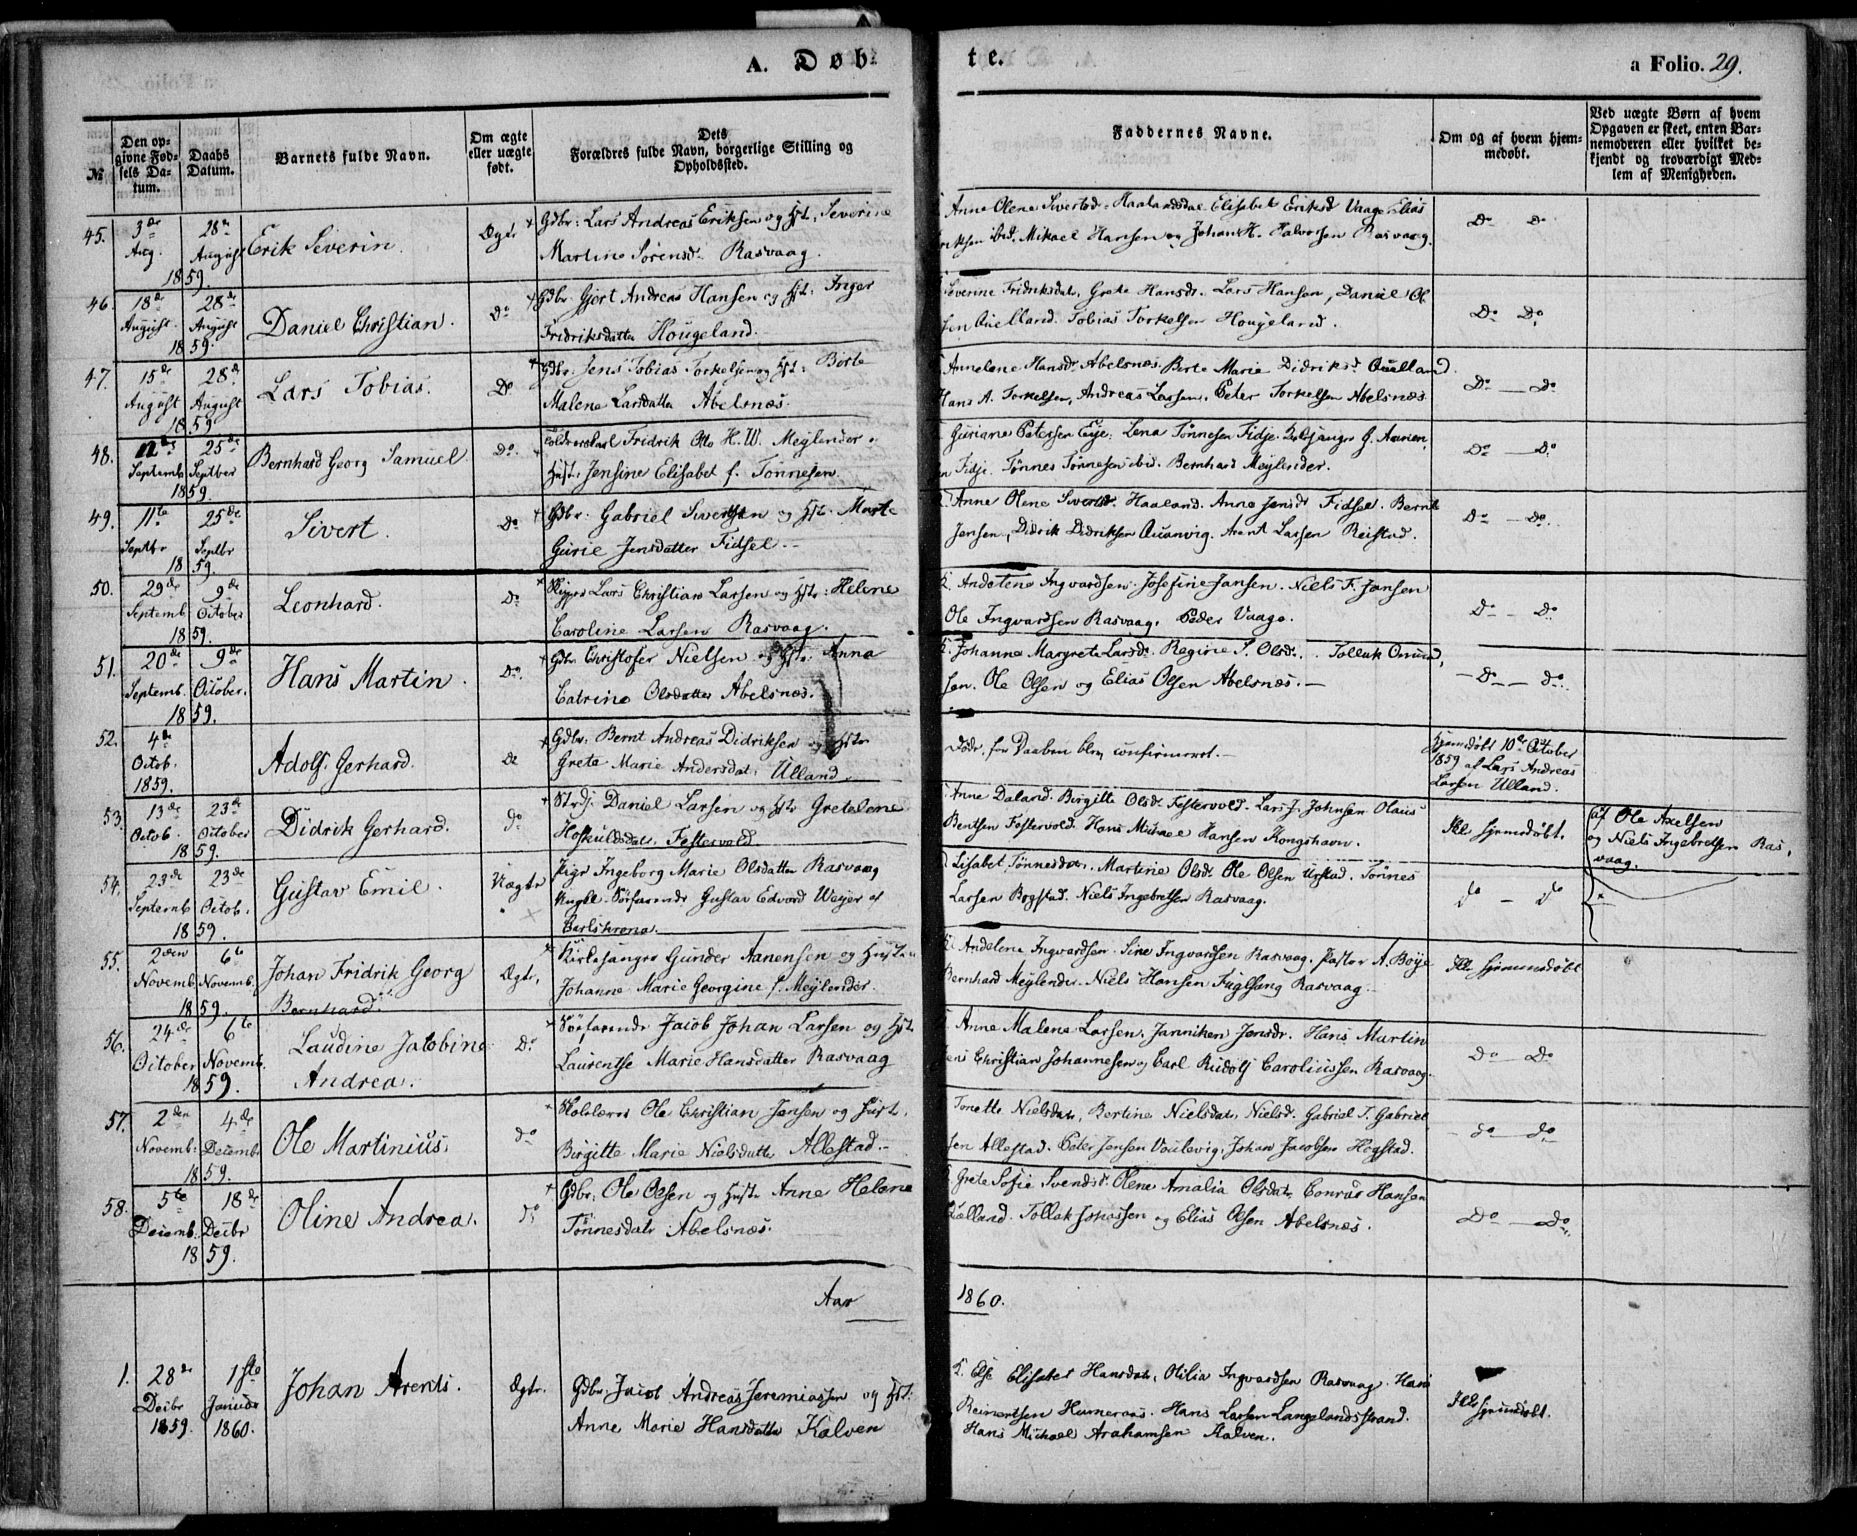 A. Døb-
te.
a Folio. 29.
№
Den opgivne Fødsels Datum.
Daabs Datum.
Barnets fulde Navn.
Om ægte eller uægte født.
Dets Forældres fulde Navn, borgerlige Stilling og Opholdssted.
Faddernes Navne.
Om og af hvem hjemmedøbt.
Ved uægte Børn af hvem Opgaven er skeet, enten Barnemoderen eller hvilket bekjendt og troværdigt Medlem af Menigheden.
45. 3de Aug. 28de August 1859. Erik Severin. Ægte
Gdbr: Lars Andreas Eriksen og Hst: Severine
Martine Sørensd. Rasvaag.
Anne Olene Sivertsd. Haalandsdal Elisabet Eriksd Vaage Elias
Eriksen ibid. Mikael Hansen og Johan H. Halvorsen Rasvaag.
Do Do
46. 18de August 28de August 1859. Daniel Christian. Do
Gdbr Gjert Andreas Hansen og Hst: Inger
Fridriksdatter Hougeland.
Severine Fridriksdat, Grete Hansdr. Lars Hansen, Daniel Ol
sen Quelland. Tobias Torkelsen Hougeland.
Do Do
47. 15de August 28de August 1859 Lars Tobias. Do
Gdbr. Jens Tobias Torkelsen og Hst: Birte
Malene Larsdatter Abelsnæs.
Annelene Hansdr. Abelsnæs. Berte Marie Didriksd Quelland.
Hans A. Torkelsen, Andreas Larsen. Peter Torkelsen Abelsnæs
Do Do
48. Septemb 25de Septber 1859. Bernhard Georg Samuel Do.
Fridrik Otto H. W. Meylender
Hust. Jensine Elisabet f. Tønnesen.
Guriane Petersen Eeje. Lena Tønnesen Fidje. G. Aanen
Fidje. Tønnes Tønnesen ibid. Bernhard Meylender.
Do Do
49. 11te Septbr 25de Septbr 1859. Sivert. Do
Gdbr. Gabriel Sivertsen og Hst. Marte
Gurie Jensdatter Fidsel.
Anne Olene Sivertsdr. Haaland. Anne Jensdr Fidsel. Bernt
Jensen, Didrik Didriksen Quanvig. Arent Larsen Reistad.
Do Do.
50. 29de Septemb 9de October 1859. Leonhard. Do
Skipper Lars Christian Larsen og Hst: Helene
Caroline Larsen Rasvaag.
F. Andelene Ingvardsen. Josefine Jansen. Niels F. Jansen
Ole Ingvardsen Rasvaag. Peder Vaage.
Do Do
51. 20de Septemb. 9de October. 1859. Hans Martin. Do.
Gdbr Christofer Nielsen og Hst: Anna
Catrine Olsdatter Abelsnæs.
F. Johanne Margrete Larsdr. Regine S. Olsdr. Tollak Omund
sen. Ole Olsen og Elias Olsen Abelsnæs.
Do Do.
52. 4de Octob. 1859. Adolf Gerhard. Do
Gdbr: Bernt Andreas Didriksen og Hstr
Grete Marie Andersdat. Ulland.
Døde, før Daaben blev confirmeret.
Hjemdøbt 10de October
1859 af Lars Andreas
Larsen Ulland.
53. 13de Octob. 23de October 1859. Didrik Gerhard. do
Strdj. Daniel Larsen og Hst Gretelene
Hofkuldsdat. Festervold.
Anne Daland. Birgitte Olsdr. Festervold. Lars J. Johnsen Olaus
Bentsen Festervold. Hans Mikael Hansen Kongshavn.
Ikke hjemmedøbt.
54. 23de Septemb 23de Octob. 1859. Gustav Emil. Uægte
Pige Ingeborg Marie Olsdatter Rasvaag
Ungkl. Søfarende Gustav Edvard Weyer af
Carlskrona.
Lisabet Tønnesdtr. Martine Olsdr. Ole Olsen Urstad. Tønnes
Larsen Bogstad. Niels Ingebretsen Rasvaag.
do do
af Ole Axelsen
og Niels Ingebretsen Ras,
vaag.
55. 2den Novemb. 6te Novemb. 1859. Johan Fridrik Georg
Bernhard. Ægte.
Kirkesanger Gunder Aanensen og Hustru
Johanne Marie Georgine f. Meylender.
F. Andelene Ingvardsen. Sine Ingvardsen Rasvaag. Pastor A. Boye
Bernhard Meylender. Niels Hansen Fuglsang Rasvaag.
Ikke hjemmedøbt
56. 24de October 6te Novemb. 1859. Laudine Jacobine
Andrea. Do
Søfarende Jacob Johan Larsen og Hst
Laurentse Marie Hansdatter Rasvaag
Anne Malene Larsen. Janniken Jensdr. Hans Martin
Jens Christian Johannesen og Carl Rudolf Caroliussen Rasvaag.
Do Do
57. 2den Novemb: 4de Decemb. 1859. Ole Martinius. do
Skolelærer Ole Christian Jensen og Hust.
Birgitte Marie Nielsdatter Allestad.
Tonette Nielsdat, Bertine Nielsdat, Nielsd. Gabriel T. Gabriel
sen Allestad. Peter Jensen Vaulevig. Johan Jacobsen Høgstad.
do do
58. 5te Decemb. 18de Decbr 1859. Oline Andrea. do
Gdbr. Ole Olsen og Hustr Anne Helene
Tønnesdatr Abelsnæs.
F. Grete Sofie Svendsd. Olene Amalia Olsdatr Conrad Hansen
Qvelland. Tollak Johassen og Elias Olsen Abelsnæs.
Do Do.
Aar 1860.
1. 28de Decbr 1859. 1ste Januar 1860. Johan Arents. Ægte.
Gdbr. Jacob Andreas Jeremiassen og Hst:
Anne Marie Hansdatter Kalven
F. Else Elisabet Hansdatr, Otilia Ingvardsen Rasvaag. Hans
Reinertsen Humeraas. Hans Larsen Langelandsstrand.
Hans Michael Arahamsen Kalven.
Ikke hjemdøbt.